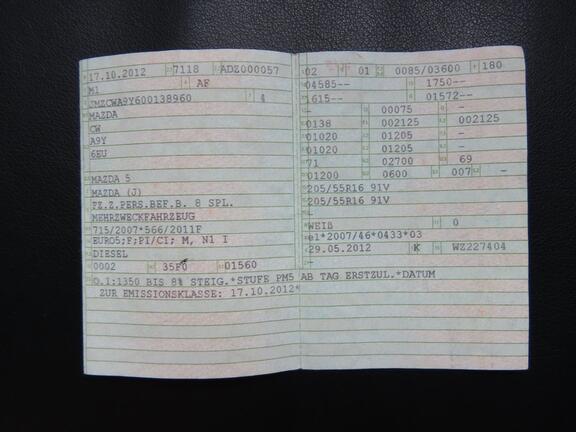 17.10.2012 7118 ADZ000057
M1 AF
JMZCWA9Y600138960 4
MAZDA
CW
A9Y
6EU
MAZDA 5
MAZDA (J)
FZ.Z.PERS.BEF.B. 8 SPL.
MEHRZWECKFAHRZEUG
715/2007*566/2011F
EURO5;F;PI/CI; M, N1 I
DIESEL
0002 35F0 01560
O.1:1350 BIS 8% STEIG.*STUFE PM5 AB TAG ERSTZUL.*DATUM
ZUR EMISSIONSKLASSE: 17.10.2012*
02 01 0085/03600 180
04585-- 1750--
1615-- 01572--
- 00075 -
0138 002125 002125
01020 01205 -
01020 01205 -
71 02700 69
01200 0600 007 -
205/55R16 91V
205/55R16 91V
-
WEIß 0
e1*2007/46*0433*03
29.05.2012 K WZ227404
-